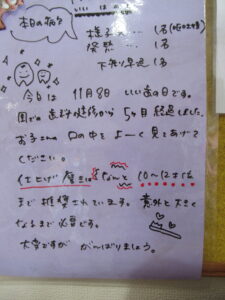 本日の病気
様子見… 1名
発熱… 1名
下痢・早退 1名
今日は 11月8日 いい歯の日です。
園での 歯科健診から 5ヶ月 経過しました。
お子さんの 口の中を よーく 見てあげて
ください。
仕上げ磨きは なんと 10〜12才位
まで 推奨されています。意外と大きく
なるまで必要です。
大変ですが がんばりましょう。